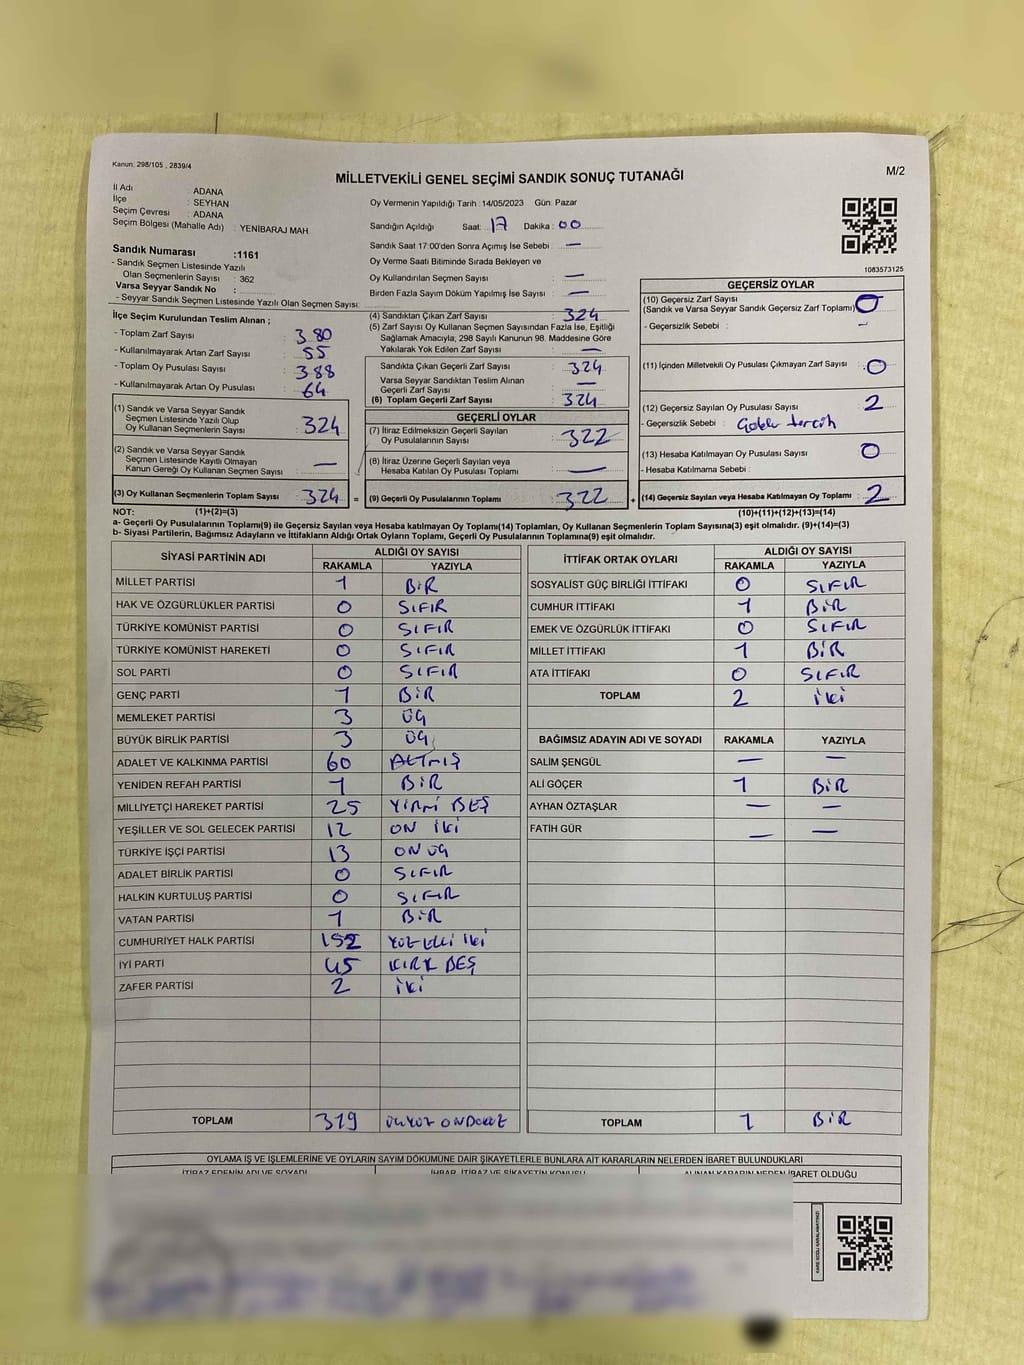 Kanun: 298/105 , 2839/4
MİLLETVEKİLİ GENEL SEÇİMİ SANDIK SONUÇ TUTANAĞI
M/2
İl Adı : ADANA
İlçe : SEYHAN
Seçim Çevresi : ADANA
Seçim Bölgesi (Mahalle Adı) : YENİBARAJ MAH
Sandık Numarası :1161
- Sandık Seçmen Listesinde Yazılı
Olan Seçmenlerin Sayısı : 362
Varsa Seyyar Sandık No :
- Seyyar Sandık Seçmen Listesinde Yazılı Olan Seçmen Sayısı:
Oy Vermenin Yapıldığı Tarih :14/05/2023 Gün: Pazar
Sandığın Açıldığı Saat: 17 Dakika : 00
Sandık Saat 17:00'den Sonra Açılmış İse Sebebi : —
Oy Verme Saati Bitiminde Sırada Bekleyen ve
Oy Kullandırılan Seçmen Sayısı : —
Birden Fazla Sayım Döküm Yapılmış İse Sayısı : —
1083573125
İlçe Seçim Kurulundan Teslim Alınan ;
- Toplam Zarf Sayısı : 380
- Kullanılmayarak Artan Zarf Sayısı : 55
- Toplam Oy Pusulası Sayısı : 388
- Kullanılmayarak Artan Oy Pusulası : 64
(1) Sandık ve Varsa Seyyar Sandık
Seçmen Listesinde Yazılı Olup
Oy Kullanan Seçmenlerin Sayısı : 324
(2) Sandık ve Varsa Seyyar Sandık
Seçmen Listesinde Kayıtlı Olmayan
Kanun Gereği Oy Kullanan Seçmen Sayısı : —
(3) Oy Kullanan Seçmenlerin Toplam Sayısı : 324 =
(4) Sandıktan Çıkan Zarf Sayısı : 324
(5) Zarf Sayısı Oy Kullanan Seçmen Sayısından Fazla İse, Eşitliği
Sağlamak Amacıyla; 298 Sayılı Kanunun 98. Maddesine Göre
Yakılarak Yok Edilen Zarf Sayısı : —
Sandıkta Çıkan Geçerli Zarf Sayısı : 324
Varsa Seyyar Sandıktan Teslim Alınan
Geçerli Zarf Sayısı : —
(6) Toplam Geçerli Zarf Sayısı : 324
GEÇERLİ OYLAR
(7) İtiraz Edilmeksizin Geçerli Sayılan
Oy Pusulalarının Sayısı : 322
(8) İtiraz Üzerine Geçerli Sayılan veya
Hesaba Katılan Oy Pusulası Toplamı : —
(9) Geçerli Oy Pusulalarının Toplamı : 322 +
GEÇERSİZ OYLAR
(10) Geçersiz Zarf Sayısı
(Sandık ve Varsa Seyyar Sandık Geçersiz Zarf Toplamı) 0
- Geçersizlik Sebebi : —
(11) İçinden Milletvekili Oy Pusulası Çıkmayan Zarf Sayısı : 0
(12) Geçersiz Sayılan Oy Pusulası Sayısı : 2
- Geçersizlik Sebebi : tercih
(13) Hesaba Katılmayan Oy Pusulası Sayısı : 0
- Hesaba Katılmama Sebebi :
(14) Geçersiz Sayılan veya Hesaba Katılmayan Oy Toplamı : 2
NOT: (1)+(2)=(3) (10)+(11)+(12)+(13)=(14)
a- Geçerli Oy Pusulalarının Toplamı(9) ile Geçersiz Sayılan veya Hesaba katılmayan Oy Toplamı(14) Toplamları, Oy Kullanan Seçmenlerin Toplam Sayısına(3) eşit olmalıdır. (9)+(14)=(3)
b- Siyasi Partilerin, Bağımsız Adayların ve İttifakların Aldığı Ortak Oyların Toplamı, Geçerli Oy Pusulalarının Toplamına(9) eşit olmalıdır.
SİYASİ PARTİNİN ADI ALDIĞI OY SAYISI
RAKAMLA YAZIYLA
MİLLET PARTİSİ 1 BİR
HAK VE ÖZGÜRLÜKLER PARTİSİ 0 SIFIR
TÜRKİYE KOMÜNİST PARTİSİ 0 SIFIR
TÜRKİYE KOMÜNİST HAREKETİ 0 SIFIR
SOL PARTİ 0 SIFIR
GENÇ PARTİ 1 BİR
MEMLEKET PARTİSİ 3 ÜÇ
BÜYÜK BİRLİK PARTİSİ 3 ÜÇ
ADALET VE KALKINMA PARTİSİ 60 ALTMIŞ
YENİDEN REFAH PARTİSİ 1 BİR
MİLLİYETÇİ HAREKET PARTİSİ 25 YİRMİ BEŞ
YEŞİLLER VE SOL GELECEK PARTİSİ 12 ON İKİ
TÜRKİYE İŞÇİ PARTİSİ 13 ON ÜÇ
ADALET BİRLİK PARTİSİ 0 SIFIR
HALKIN KURTULUŞ PARTİSİ 0 SIFIR
VATAN PARTİSİ 1 BİR
CUMHURİYET HALK PARTİSİ 152 YÜZ ELLİ İKİ
İYİ PARTİ 45 KIRK BEŞ
ZAFER PARTİSİ 2 İKİ
TOPLAM 319 ÜÇYÜZ ONDOKUZ
İTTİFAK ORTAK OYLARI ALDIĞI OY SAYISI
RAKAMLA YAZIYLA
SOSYALİST GÜÇ BİRLİĞİ İTTİFAKI 0 SIFIR
CUMHUR İTTİFAKI 1 BİR
EMEK VE ÖZGÜRLÜK İTTİFAKI 0 SIFIR
MİLLET İTTİFAKI 1 BİR
ATA İTTİFAKI 0 SIFIR
TOPLAM 2 İKİ
BAĞIMSIZ ADAYIN ADI VE SOYADI RAKAMLA YAZIYLA
SALİM ŞENGÜL — —
ALİ GÖÇER 1 BİR
AYHAN ÖZTAŞLAR — —
FATİH GÜR — —
TOPLAM 1 BİR
OYLAMA İŞ VE İŞLEMLERİNE VE OYLARIN SAYIM DÖKÜMÜNE DAİR ŞİKAYETLERLE BUNLARA AİT KARARLARIN NELERDEN İBARET BULUNDUKLARI
İTİRAZ EDENİN ADI VE SOYADI İHBAR, İTİRAZ VE ŞİKAYETİN KONUSU ALINAN KARARIN NEDEN İBARET OLDUĞU